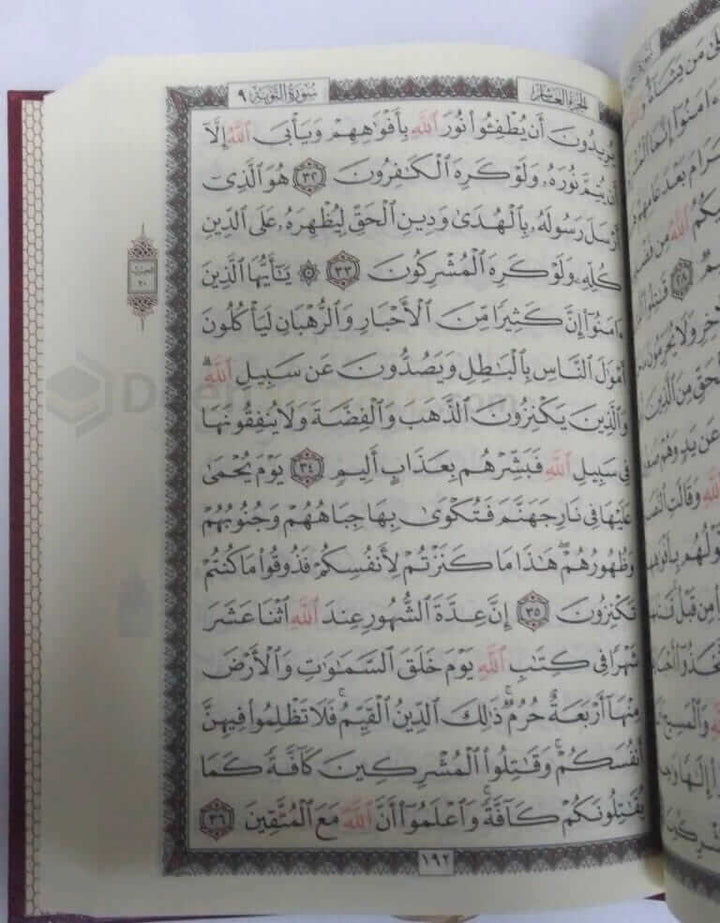 سورة التوبة ٩
الجزء العاشر
يُرِيدُونَ أَن يُطْفِـُٔوا۟ نُورَ ٱللَّهِ بِأَفْوَٰهِهِمْ وَيَأْبَى ٱللَّهُ إِلَّآ
أَن يُتِمَّ نُورَهُۥ وَلَوْ كَرِهَ ٱلْكَٰفِرُونَ ٣٢ هُوَ ٱلَّذِىٓ
أَرْسَلَ رَسُولَهُۥ بِٱلْهُدَىٰ وَدِينِ ٱلْحَقِّ لِيُظْهِرَهُۥ عَلَى ٱلدِّينِ
كُلِّهِۦ وَلَوْ كَرِهَ ٱلْمُشْرِكُونَ ٣٣ ۞ يَٰٓأَيُّهَا ٱلَّذِينَ
ءَامَنُوٓا۟ إِنَّ كَثِيرًا مِّنَ ٱلْأَحْبَارِ وَٱلرُّهْبَانِ لَيَأْكُلُونَ
أَمْوَٰلَ ٱلنَّاسِ بِٱلْبَٰطِلِ وَيَصُدُّونَ عَن سَبِيلِ ٱللَّهِ ۗ
وَٱلَّذِينَ يَكْنِزُونَ ٱلذَّهَبَ وَٱلْفِضَّةَ وَلَا يُنفِقُونَهَا
فِى سَبِيلِ ٱللَّهِ فَبَشِّرْهُم بِعَذَابٍ أَلِيمٍ ٣٤ يَوْمَ يُحْمَىٰ
عَلَيْهَا فِى نَارِ جَهَنَّمَ فَتُكْوَىٰ بِهَا جِبَاهُهُمْ وَجُنُوبُهُمْ
وَظُهُورُهُمْ ۖ هَٰذَا مَا كَنَزْتُمْ لِأَنفُسِكُمْ فَذُوقُوا۟ مَا كُنتُمْ
تَكْنِزُونَ ٣٥ إِنَّ عِدَّةَ ٱلشُّهُورِ عِندَ ٱللَّهِ ٱثْنَا عَشَرَ
شَهْرًا فِى كِتَٰبِ ٱللَّهِ يَوْمَ خَلَقَ ٱلسَّمَٰوَٰتِ وَٱلْأَرْضَ
مِنْهَآ أَرْبَعَةٌ حُرُمٌ ۚ ذَٰلِكَ ٱلدِّينُ ٱلْقَيِّمُ ۚ فَلَا تَظْلِمُوا۟ فِيهِنَّ
أَنفُسَكُمْ ۚ وَقَٰتِلُوا۟ ٱلْمُشْرِكِينَ كَآفَّةً كَمَا
يُقَٰتِلُونَكُمْ كَآفَّةً ۚ وَٱعْلَمُوٓا۟ أَنَّ ٱللَّهَ مَعَ ٱلْمُتَّقِينَ ٣٦
١٩٢
الحزب
٢٠